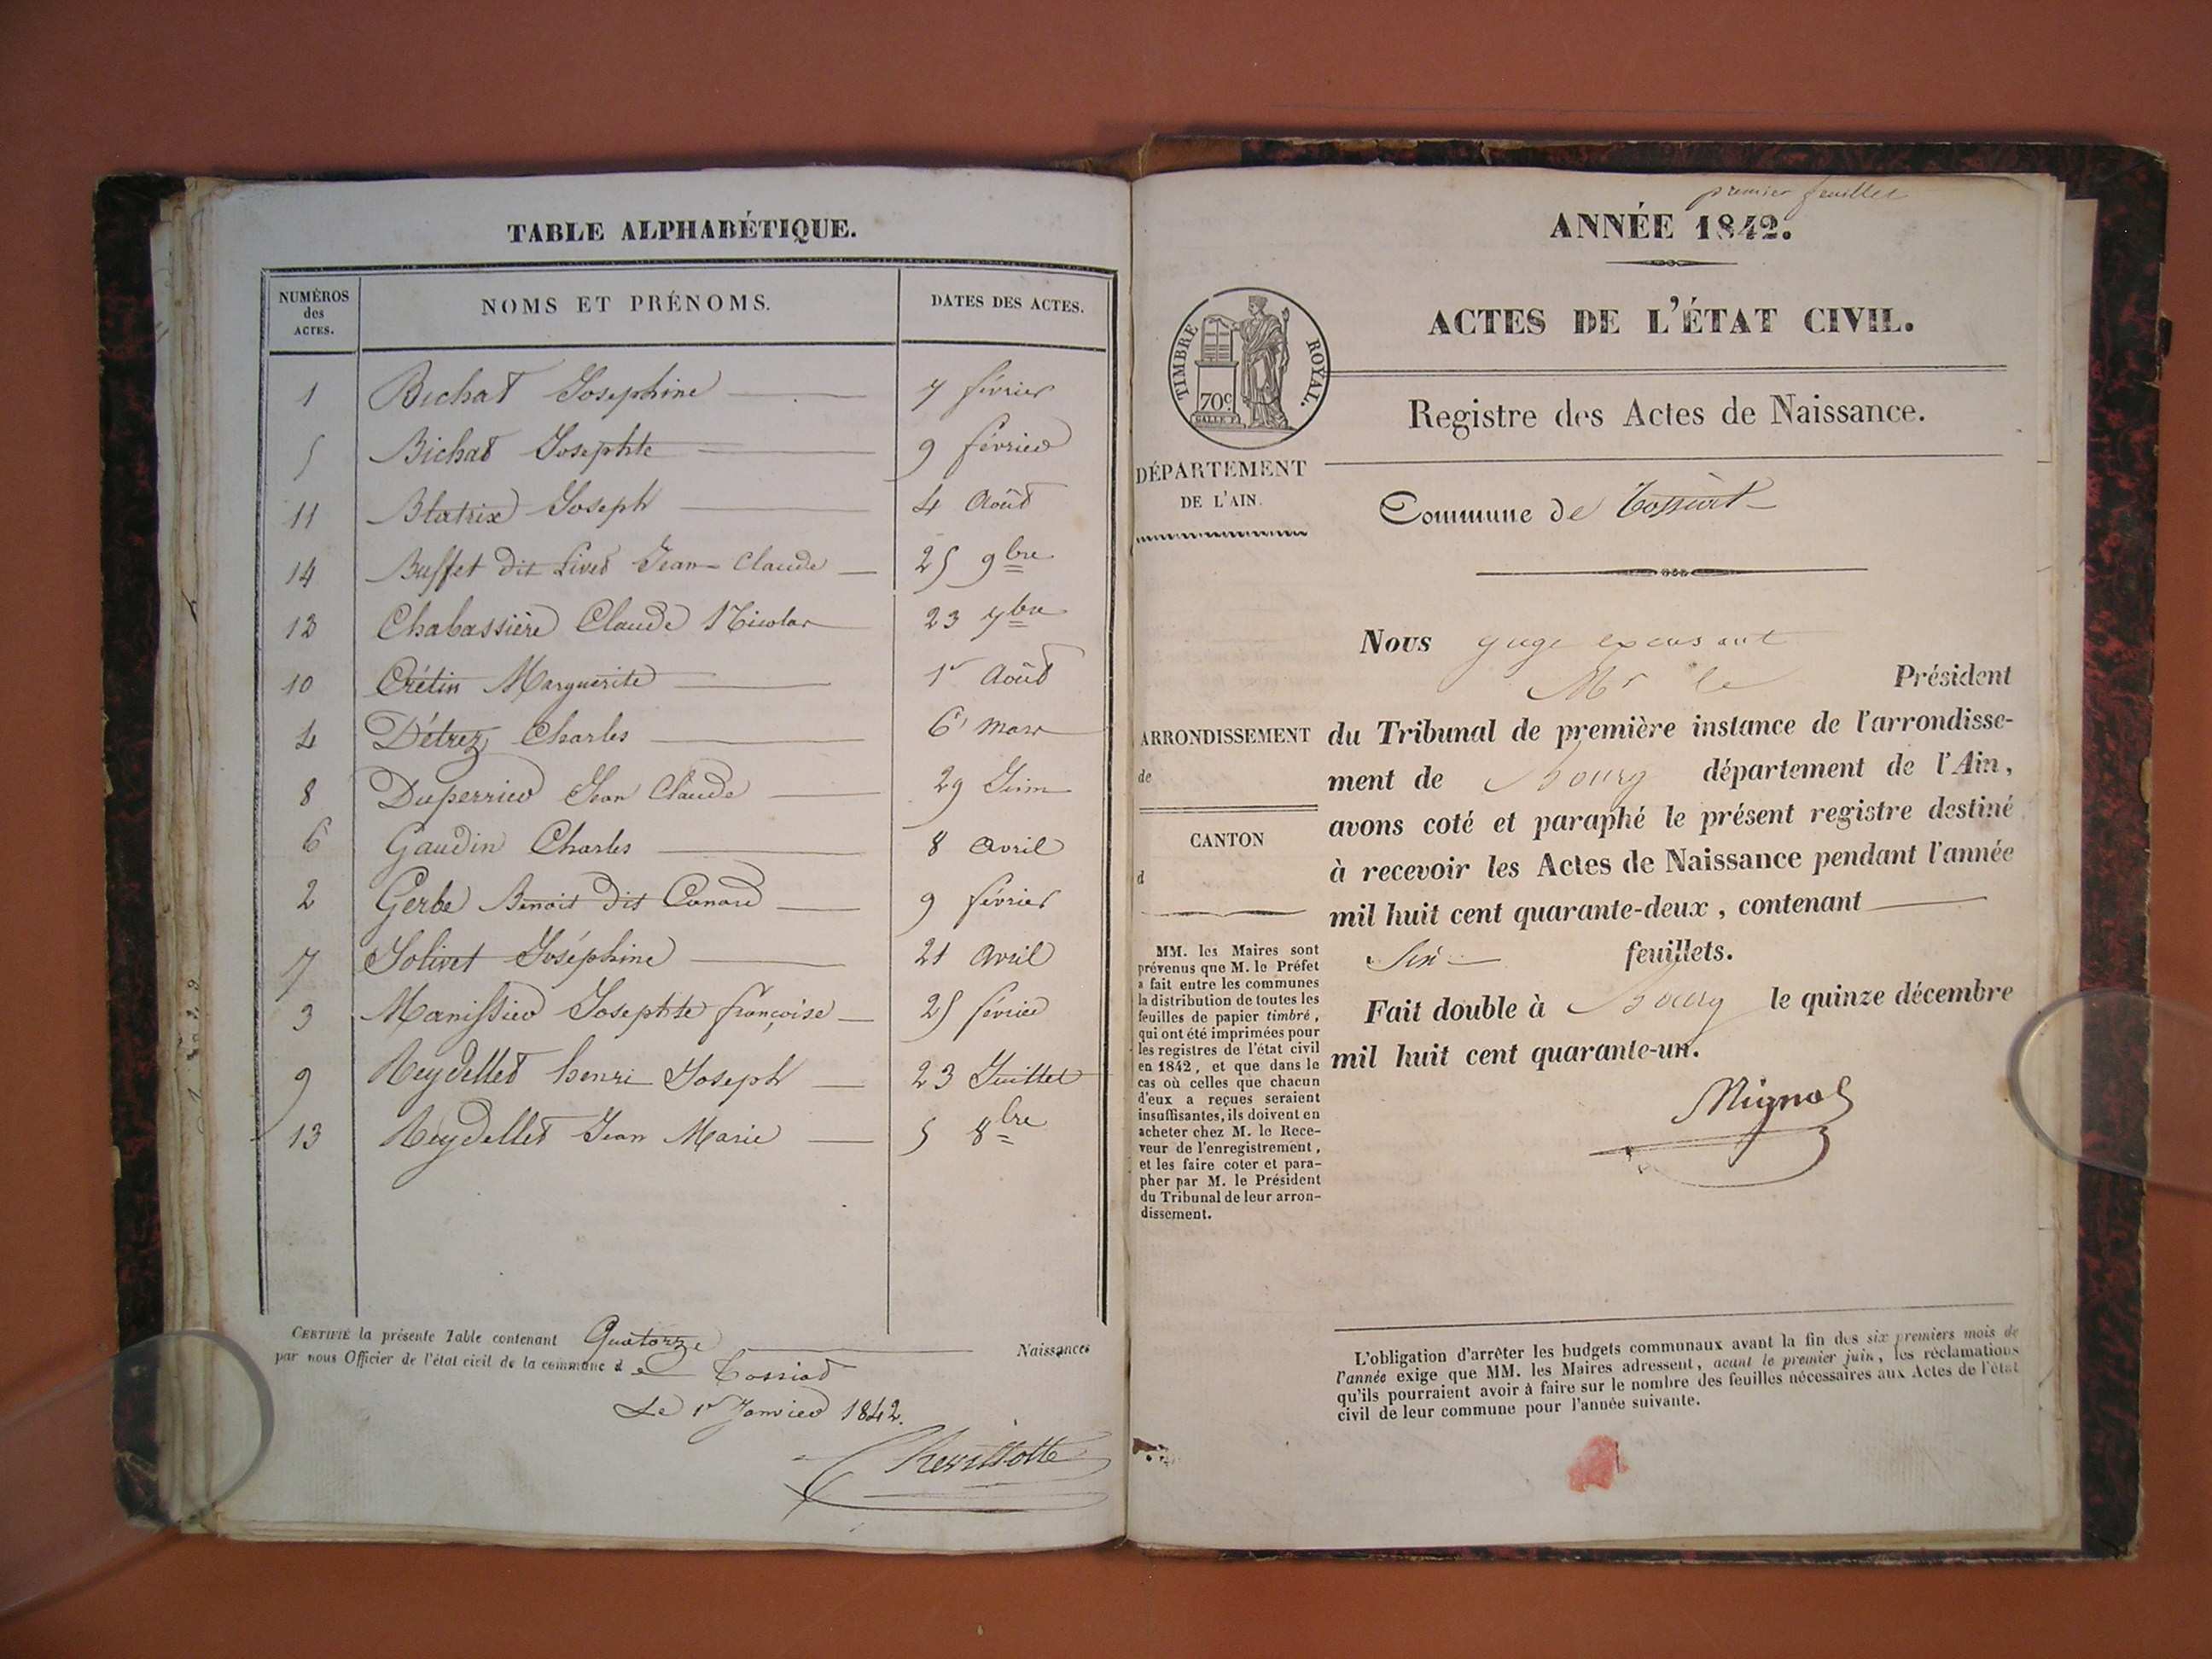 TABLE ALPHABÉTIQUE.
NUMÉROS des ACTES. NOMS ET PRÉNOMS. DATES DES ACTES.
1 Bichat Josephine 7 février
5 Bichat Josephte 9 février
11 Blatrix Joseph 4 Août
14 Buffet dit Livet Jean-Claude 25 9bre
12 Chabassière Claude Nicolas 23 7bre
10 Crétin Marguerite 1r Août
4 Détrez Charles 6 mars
8 Duperrier Jean Claude 29 Juin
6 Gaudin Charles 8 avril
2 Gerbe Benoit dit Canard 9 février
7 Jolivet Joséphine 21 Avril
3 Manissier Josephte françoise 25 février
9 Reydellet henri Joseph 23 Juillet
13 Reydellet Jean Marie 5 8bre
CERTIFIÉ la présente Table contenant Quatorze Naissances
par nous Officier de l'état civil de la commune de Tossiat
Le 1r Janvier 1842.
premier feuillet
ANNÉE 1842.
ACTES DE L'ÉTAT CIVIL.
TIMBRE ROYAL.
70c
Registre des Actes de Naissance.
DÉPARTEMENT
DE L'AIN.
Commune de Tossiat
Nous juge excusant
Mr le Président
ARRONDISSEMENT
de
CANTON
d
du Tribunal de première instance de l'arrondisse-
ment de Bourg département de l'Ain,
avons coté et paraphé le présent registre destiné
à recevoir les Actes de Naissance pendant l'année
mil huit cent quarante-deux, contenant
Six feuillets.
Fait double à Bourg le quinze décembre
mil huit cent quarante-un.
MM. les Maires sont
prévenus que M. le Préfet
a fait entre les communes
la distribution de toutes les
feuilles de papier timbré,
qui ont été imprimées pour
les registres de l'état civil
en 1842, et que dans le
cas où celles que chacun
d'eux a reçues seraient
insuffisantes, ils doivent en
acheter chez M. le Rece-
veur de l'enregistrement,
et les faire coter et para-
pher par M. le Président
du Tribunal de leur arron-
dissement.
L'obligation d'arrêter les budgets communaux avant la fin des six premiers mois de
l'année exige que MM. les Maires adressent, avant le premier juin, les réclamations
qu'ils pourraient avoir à faire sur le nombre des feuilles nécessaires aux Actes de l'état
civil de leur commune pour l'année suivante.